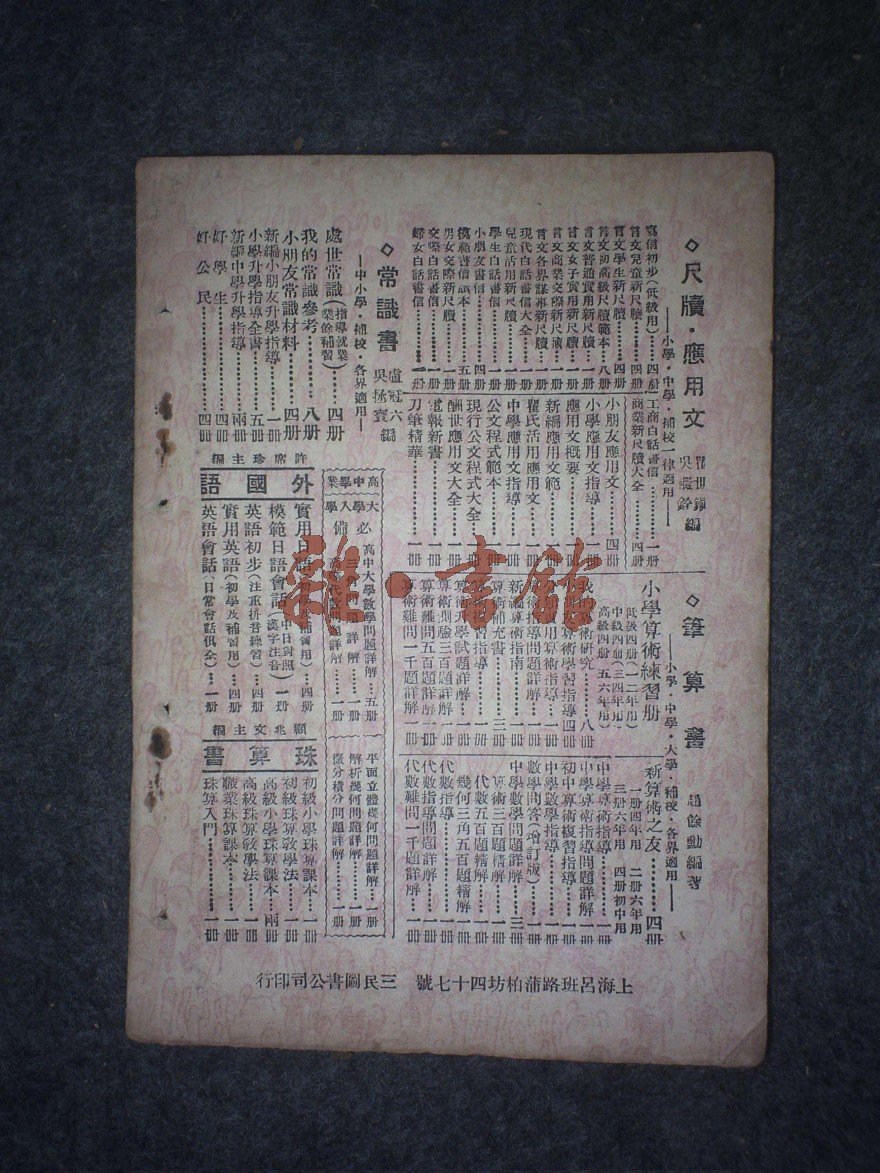 ◇尺牘・應用文
—小學・中學・補校一律適用—
寫信初步(低級用)……四册
言文兒童新尺牘……四册
言文學生新尺牘……四册
言文初高級尺牘範本……八册
言文普通實用新尺牘……一册
言文女子實用新尺牘……一册
言文商業交際新尺牘……一册
言文各界謀事新尺牘……一册
現代白話書信大全……一册
兒童活用新尺牘……一册
學生白話書信……一册
小朋友書信……四册
模範書信讀本……五册
男女交際新尺牘……一册
交際白話書信……一册
婦女白話書信……一册
工商白話書信……一册
商業新尺牘大全……四册
小朋友應用文……四册
小學應用文指導……一册
應用文概要……一册
新編應用文範……一册
瞿氏活用應用文……一册
中學應用文指導……一册
公文程式範本……一册
現行公文程式大全……一册
酬世應用文大全……一册
電報新書……一册
刀筆精華……一册
◇常識書
盧冠六
吳拯寰編
—中小學・補校・各界適用—
處世常識(指導就業 業餘補習)……四册
我的常識參考……八册
小朋友常識材料……四册
新編小朋友升學指導……一册
小學升學指導全書……五册
新編中學升學指導……兩册
好學生……四册
好公民……四册
◇筆算書
趙餘勳編著
—小學・中學・大學・補校・各界適用—
小學算術練習册
低級四册(一二年用)
中級四册(三四年用)
高級四册(五六年用)
算術研究……八册
算術學習指導……四册
用算術指導……一册
算術指導問題詳解……一册
新編算術指南……一册
算術補充書……三册
算術復習指導……一册
算術升學試題詳解……一册
算術測驗三百題詳解……一册
算術難問五百題詳解……一册
算術難問一千題詳解……一册
新算術之友……四册
一册四年用 二册六年用
三册六年用 四册初中用
中學算術指導……一册
中學算術指導問題詳解……一册
初中算術複習指導……一册
中學數學指導……一册
數學問答(增訂版)……一册
中學數學問題詳解……三册
算術三百題精解……一册
代數五百題精解……一册
幾何三角五百題精解……一册
代數指導……一册
代數指導問題詳解……一册
代數難問一千題詳解……一册
高中畢業
大學入學
必備
高中大學數學問題詳解……五册
三角問題詳解……一册
代數問題詳解……一册
平面立體幾何問題詳解……一册
解析幾何問題詳解……一册
微分積分問題詳解……一册
許席珍主編
外國語
實用日語……四册
模範日語會話(中日對照 漢字注音)……一册
英語初步(注重拼音練習)……四册
實用英語(初學及補習用)……四册
英語會話(日常會話俱全)……一册
顧兆文主編
珠算書
初級小學珠算課本……一册
初級珠算教學法……一册
高級小學珠算課本……兩册
高級珠算教學法……一册
職業珠算課本……一册
珠算入門……一册
上海呂班路蒲柏坊四十七號 三民圖書公司印行
雜・書館